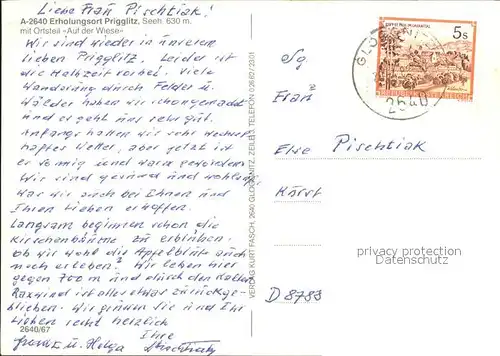 Liebe Frau Pischtiak!
A-2640 Erholungsort Prigglitz, Seeh. 630 m.
mit Ortsteil «Auf der Wiese»
Wir sind wieder in unserem
lieben Prigglitz. Leider ist
die Halbzeit vorbei. Viele
Wanderung durch Felder u.
Wälder haben wir schon gemacht
und es geht uns sehr gut.
Anfangs hatten wir sehr wechsel-
haftes Wetter, aber jetzt ist
es sonnig und warm geworden.
Wir sind gesund und wohlauf
was wir auch bei Ihnen und
Ihren Lieben erhoffen.
Langsam beginnen schon die
Kirschenbäume zu erblühen.
Ob wir wohl die Apfelblüte auch
noch erleben? Wir leben hier
gegen 700 m und durch den kalten
Raxwind ist alles etwas zurückge-
blieben. Wir grüßen Sie und Ihre
Lieben recht herzlich
Ihre
u. Helga
2640/67
VERLAG KURT FASCH, 2640 GLOGGNITZ, ZEILE, TELEFON 02662/2301
GLOGGNITZ
2640
5s
REPUBLIK ÖSTERREICH
Fran
Else Pischtiak
Karst
D 8783
privacy protection
Datenschutz